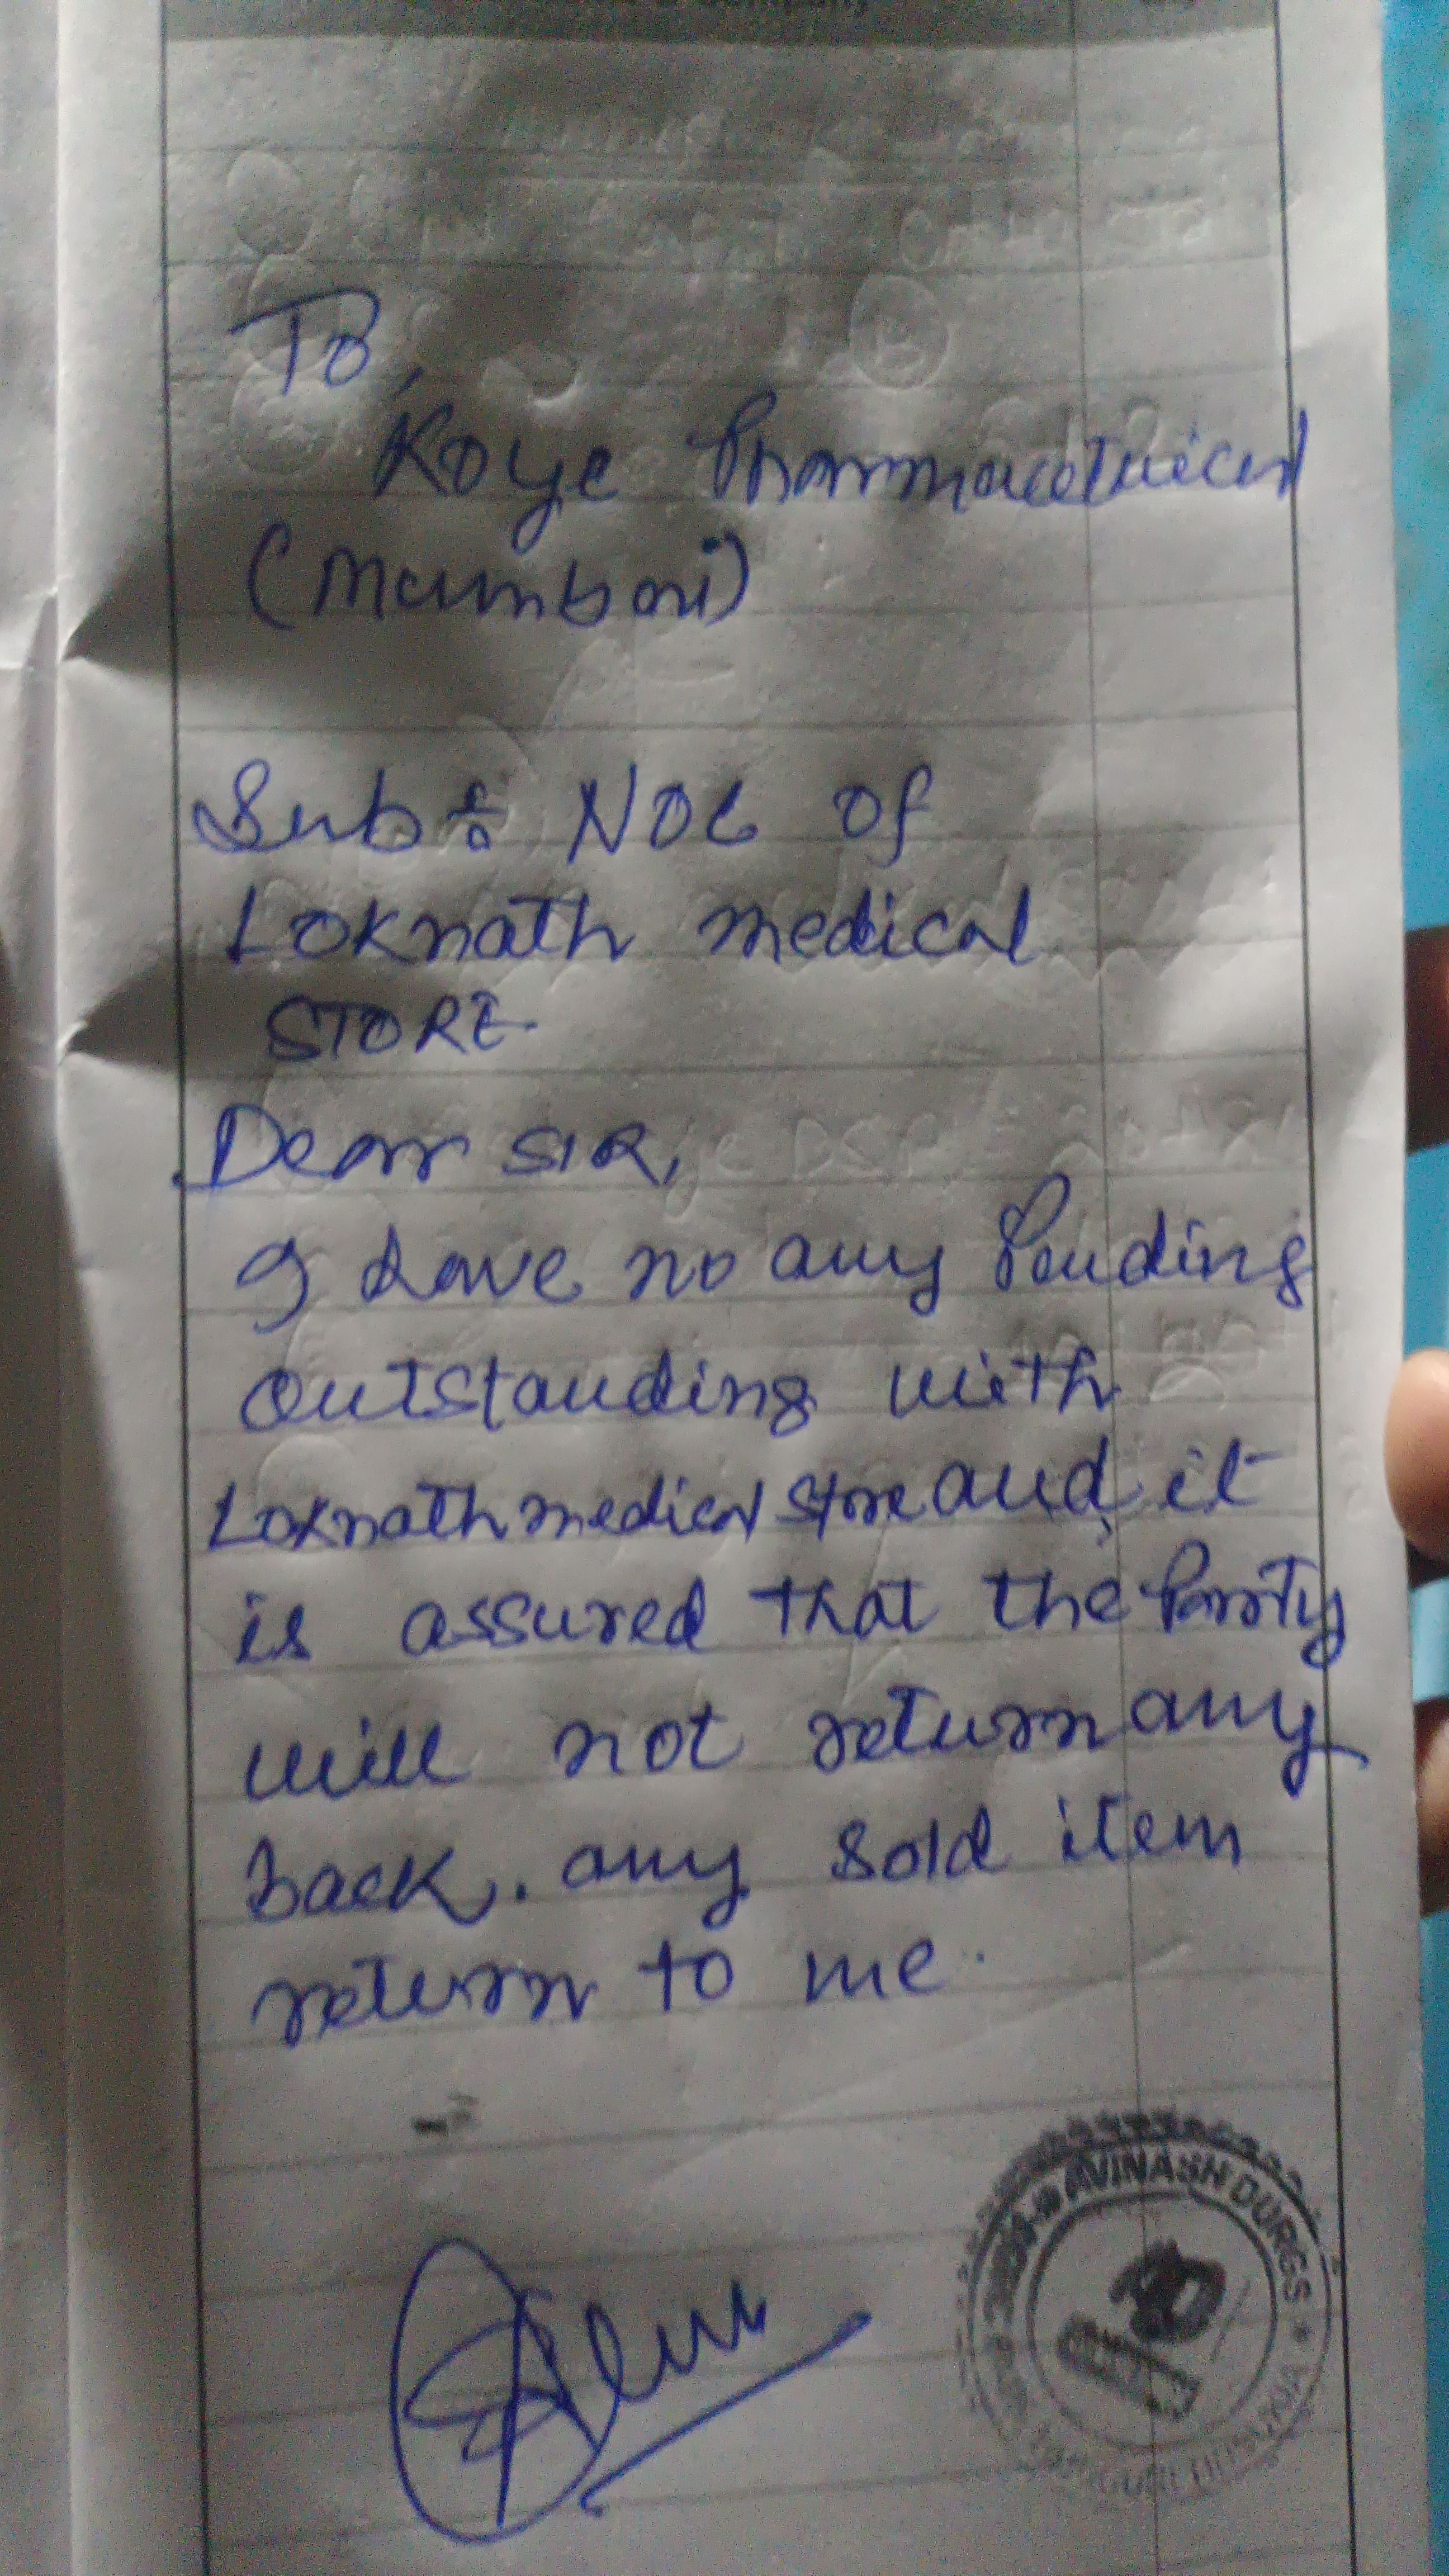 To,
Koye Pharmaceutical
(Mumbai)
Sub: NOC of
Loknath medical
STORE
Dear SIR,
I have no any Pending
outstanding with
Loknath medical store and it
is assured that the Party
will not return any
back. any sold item
return to me.
AVINASH DURGS